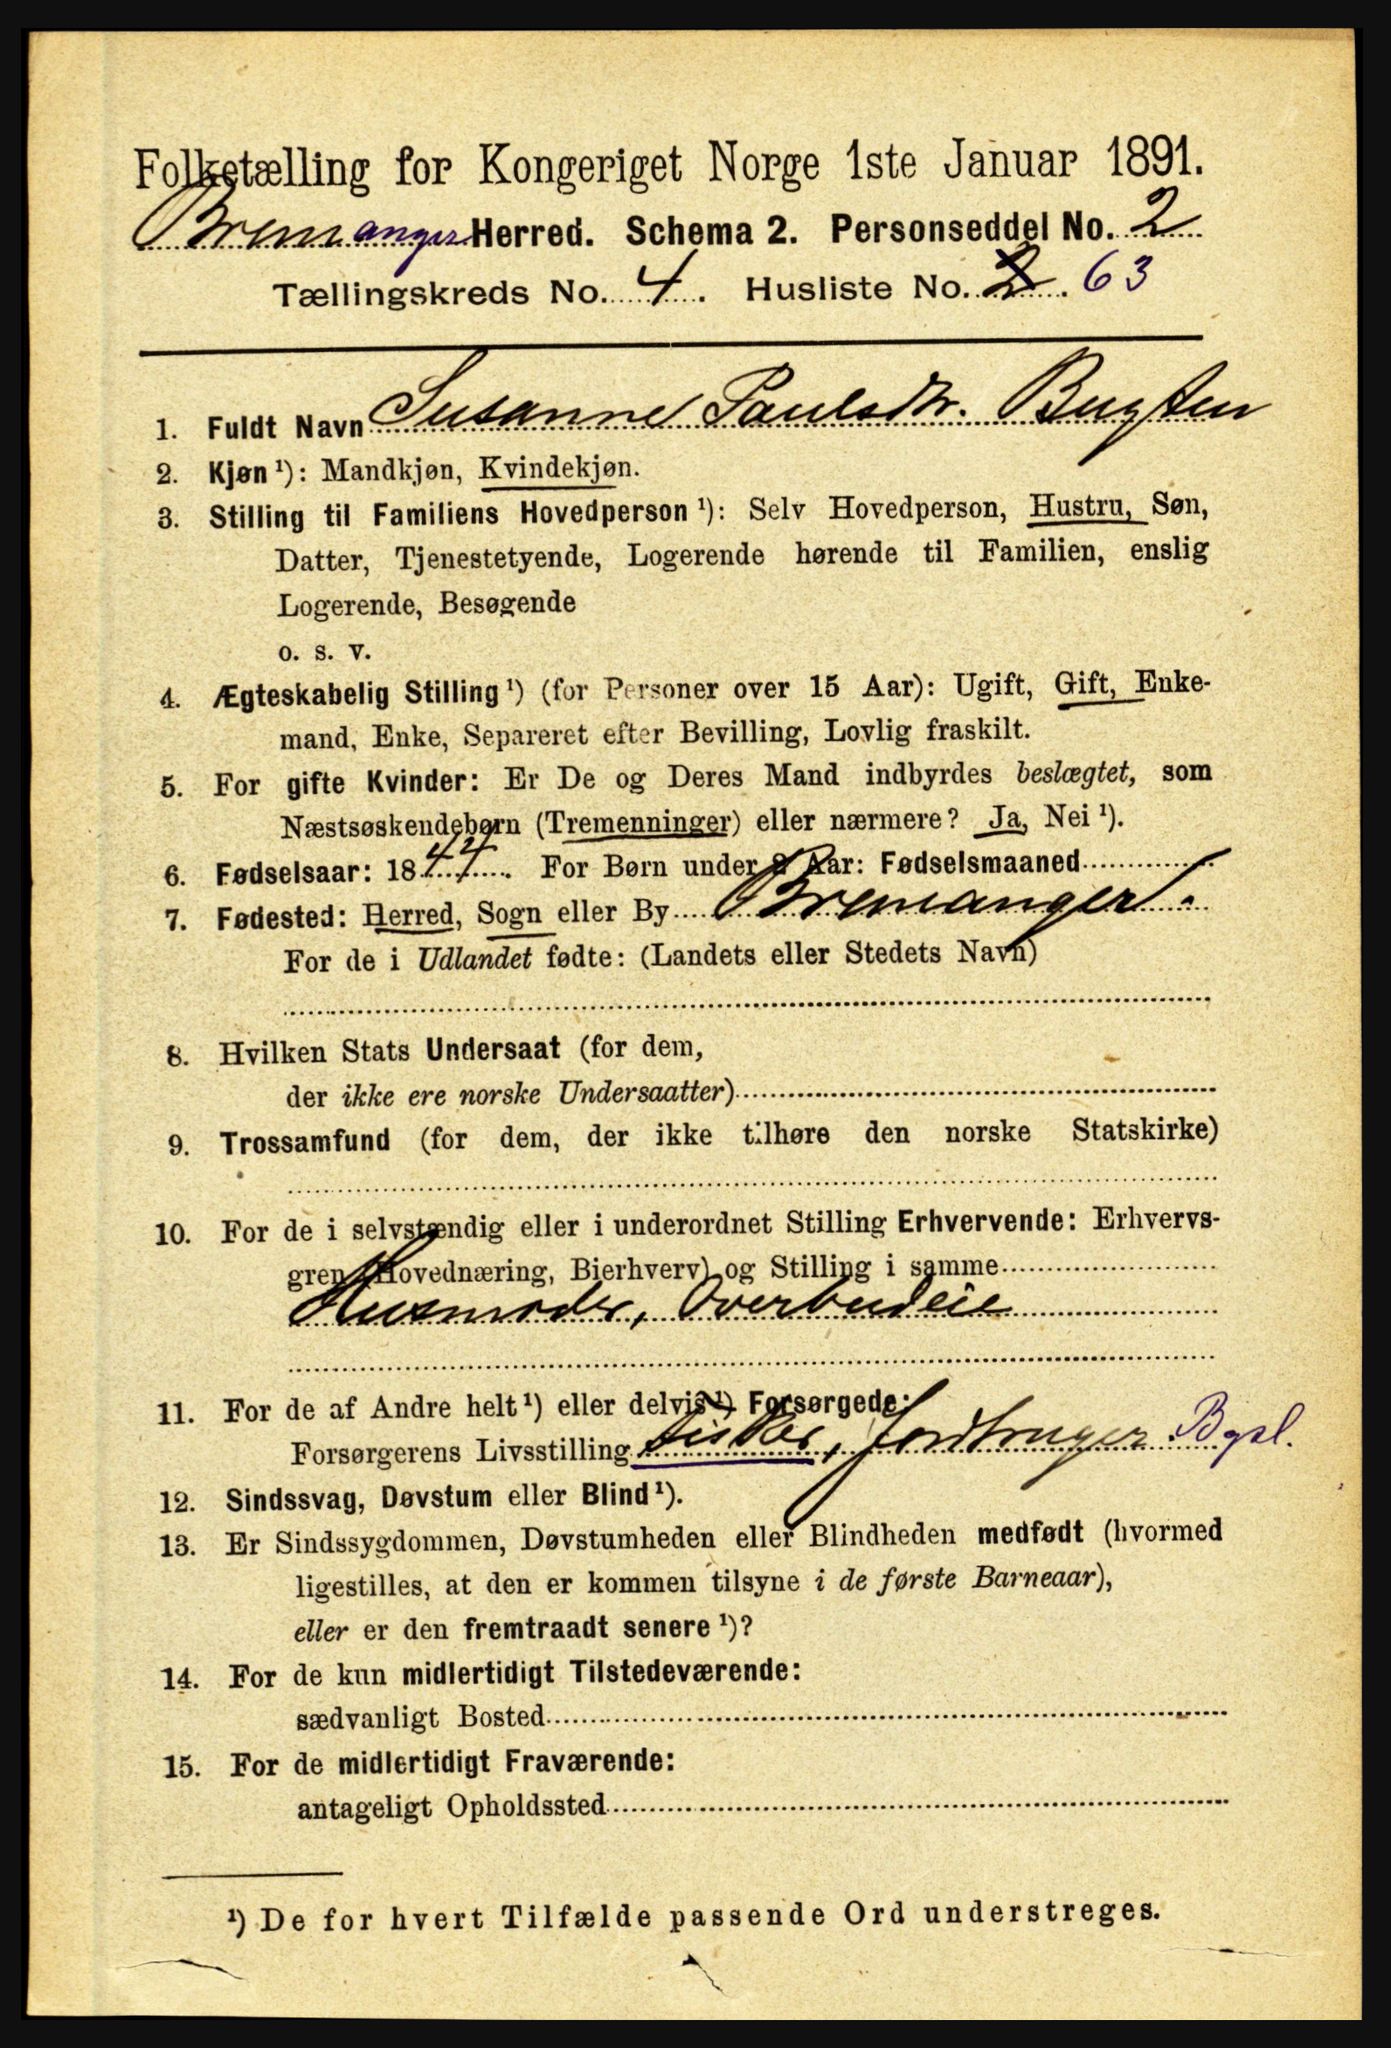 Folketælling for Kongeriget Norge 1ste Januar 1891.
Bremanger Herred. Schema 2. Personseddel No. 2
Tællingskreds No. 4. Husliste No. 2. 63
1. Fuldt Navn Susanne Paulsdtr. Bugten
2. Kjøn ¹): Mandkjøn, Kvindekjøn.
3. Stilling til Familiens Hovedperson ¹): Selv Hovedperson, Hustru, Søn,
Datter, Tjenestetyende, Logerende hørende til Familien, enslig
Logerende, Besøgende
o. s. v.
4. Ægteskabelig Stilling ¹) (for Personer over 15 Aar): Ugift, Gift, Enke-
mand, Enke, Separeret efter Bevilling, Lovlig fraskilt.
5. For gifte Kvinder: Er De og Deres Mand indbyrdes beslægtet, som
Næstsøskendebørn (Tremenninger) eller nærmere? Ja, Nei ¹).
6. Fødselsaar: 1844. For Børn under 2 Aar: Fødselsmaaned
7. Fødested: Herred, Sogn eller By Bremanger.
For de i Udlandet fødte: (Landets eller Stedets Navn)
8. Hvilken Stats Undersaat (for dem,
der ikke ere norske Undersaatter)
9. Trossamfund (for dem, der ikke tilhøre den norske Statskirke)
10. For de i selvstændig eller i underordnet Stilling Erhvervende: Erhvervs-
gren (Hovednæring, Bierhverv) og Stilling i samme
Husmoder, Overbudeie
11. For de af Andre helt ¹) eller delvis ¹) Forsørgede:
Forsørgerens Livsstilling Fisker, Jordbruger Bgsl.
12. Sindssvag, Døvstum eller Blind ¹).
13. Er Sindssygdommen, Døvstumheden eller Blindheden medfødt (hvormed
ligestilles, at den er kommen tilsyne i de første Barneaar),
eller er den fremtraadt senere ¹)?
14. For de kun midlertidigt Tilstedeværende:
sædvanligt Bosted
15. For de midlertidigt Fraværende:
antageligt Opholdssted
¹) De for hvert Tilfælde passende Ord understreges.